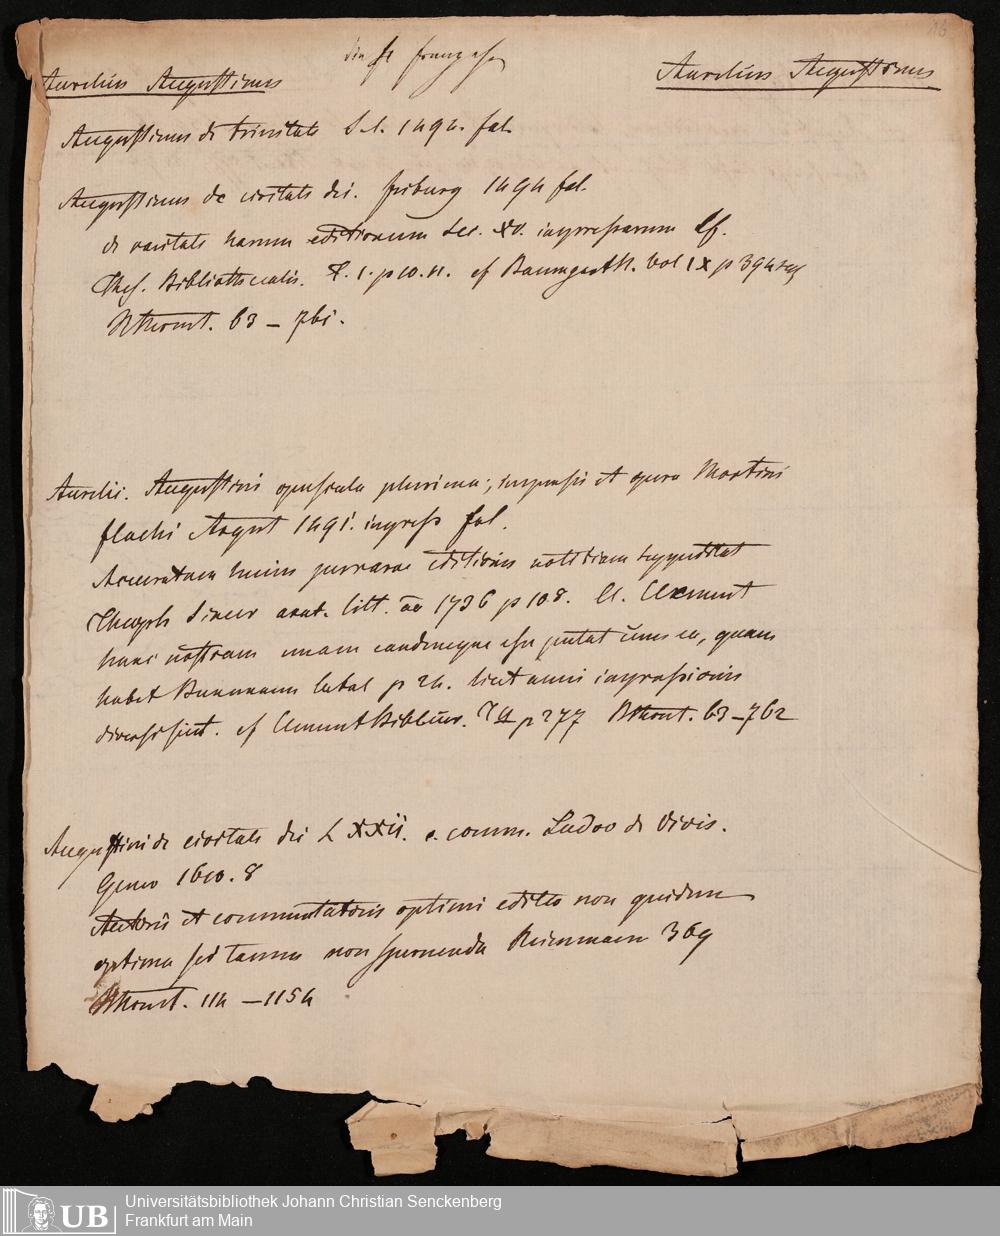 Aurelius Augustinus
Aurelius Augustinus
Augustinus de trinitate S. l. 1494. fol.
Augustinus de civitate dei. friburg 1494 fol.
de raritate harum editionum Sec. XV. impressarum Cf.
Thes. Bibliothecalis. T. 1. p 10. 11. cf Baumgarth. Vol IX p 394
63 - 761.
Aurelii. Augustini opuscula plurima; impensis et opera Martini
flachi Argent 1491. impress fol.
Accuratam huius perrarae editionis notitiam suppeditat
Theoph Sincer 1736 p 108. Cl. Clement
hanc nostram unam eandemque esse putat cum ea, quam
habet Bunemann p 24. licet anni impressionis
diversi sint. cf Clement Bibl p 277 63-762
Augustini de civitate dei L XXII. c. comm. Ludov de Vivis.
Genev 1610. 8
Autoris et commentatoris optimi editio non quidem
optima sed tamen non spernenda Reimmann 369
114 - 1154
UB
Universitätsbibliothek Johann Christian Senckenberg
Frankfurt am Main